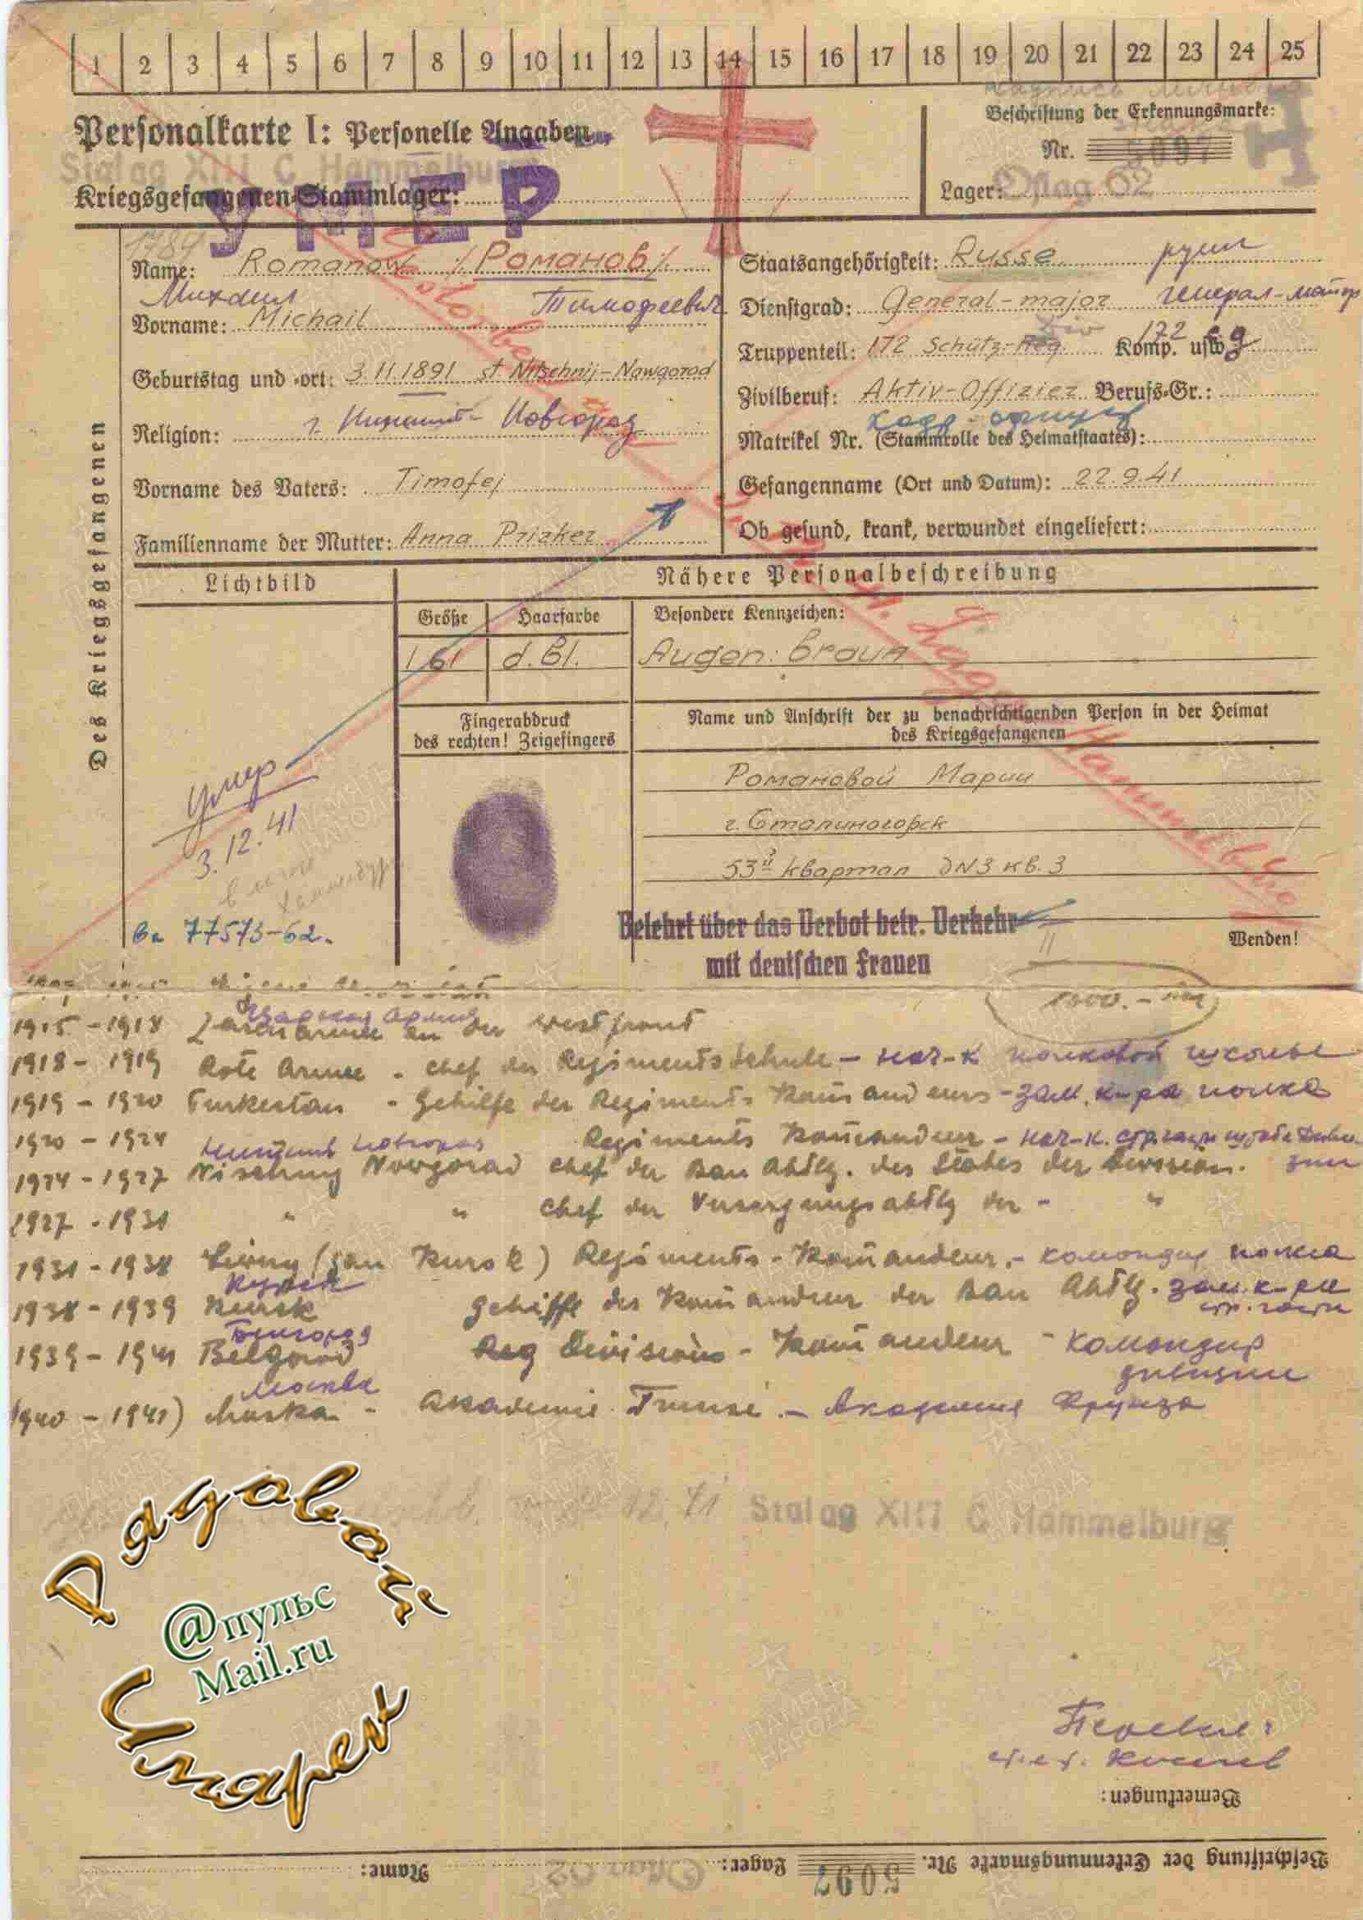 1 2 3 4 5 6 7 8 9 10 11 12 13 14 15 16 17 18 19 20 21 22 23 24 25
Personalkarte I: Personelle Angaben
Beschriftung der Erkennungsmarke:
Nr. 5097
Stalag XIII C Hammelburg
Kriegsgefangenen-Stammlager:
Lager: Oflag 62
УМЕР
Des Kriegsgefangenen
Name: Romanow /Романов/
Михаил Тимофеевич
Vorname: Michail
Geburtstag und -ort: 3.11.1891 st Nitschnij-Nowgorod
Religion: г. Нижний-Новгород
Vorname des Vaters: Timofej
Familienname der Mutter: Anna Prizker
Staatsangehörigkeit: Russe
Dienstgrad: General-major генерал-майор
Truppenteil: 172 Schütz-Reg. Komp. usw. 172
Zivilberuf: Aktiv-Offizier Berufs-Gr.:
кадр. офицер
Matrikel Nr. (Stammrolle des Heimatstaates):
Gefangenname (Ort und Datum): 22.9.41
Ob gesund, krank, verwundet eingeliefert:
Lichtbild
Nähere Personalbeschreibung
Größe Haarfarbe Besondere Kennzeichen:
1 61 d. Bl. Augen: braun
Fingerabdruck
des rechten! Zeigefingers
Name und Anschrift der zu benachrichtigenden Person in der Heimat
des Kriegsgefangenen
Романовой Марии
г. Сталиногорск
53й квартал дN3 кв. 3
умер
3.12.41
в лагере
Хаммельбург
вх 77573-62.
Gestorben
Lager Hammelburg
Belehrt über das Verbot betr. Verkehr
mit deutschen Frauen
Wenden!
1915 - 1918 Zaren Armee an der Westfront
Царская Армия
1918 - 1919 Rote Armee - Chef der Regimentsschule - нач-к полковой школы
1919 - 1920 Turkestan - Gehilfe des Regiments Kommandeurs - зам. к-ра полка
1920 - 1924 Regiments Kommandeur - нач-к. стр. части штаба
Нижний Новгород
1924 - 1927 Nischny Nowgorod Chef der Bau Abtlg. des Stabes der Division.
1927 - 1931 " " Chef der Versorgungsabtlg der - "
1931 - 1938 Liwny (Kursk) Regiments-Kommandeur - командир полка
Курск
1938 - 1939 Kursk Gehilfe des Kommandeur der Bau Abtlg. зам. к-ра
стр. части
Белгород
1939 - 1941 Belgorod Divisions-Kommandeur - командир
дивизии
Москва
1940 - 1941) Moskau - Akademie Frunse - Академия Фрунзе
12.41 Stalag XIII C Hammelburg
Рядовой
@пульс
Mail.ru
Имарек
Перевел:
Bemerkungen:
Beschriftung der Erkennungsmarke Nr. 5097 Lager: Oflag 62 Name:
ПАМЯТЬ НАРОДА